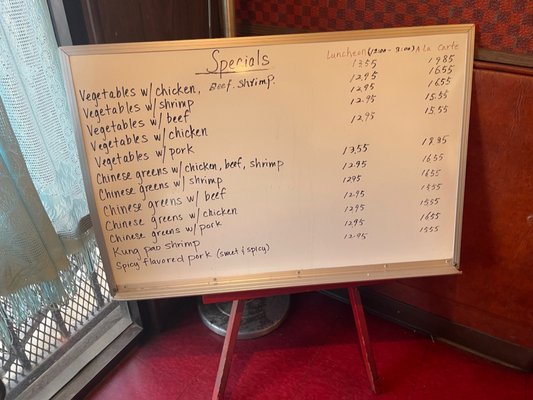 Specials Luncheon (12:00 - 3:00) A La Carte
Vegetables w/ chicken, Beef. Shrimp. 13.55
Vegetables w/ shrimp 12.95 16.55
Vegetables w/ beef 12.95 16.55
Vegetables w/ chicken 12.95 15.55
Vegetables w/ pork 12.95 15.55
Chinese greens w/ chicken, beef, shrimp 13.55
Chinese greens w/ shrimp 12.95 16.55
Chinese greens w/ beef 12.95
Chinese greens w/ chicken 12.95 15.55
Chinese greens w/ pork 12.95 15.55
Kung pao shrimp 12.95 16.55
Spicy flavored pork (sweet & spicy) 12.95 15.55